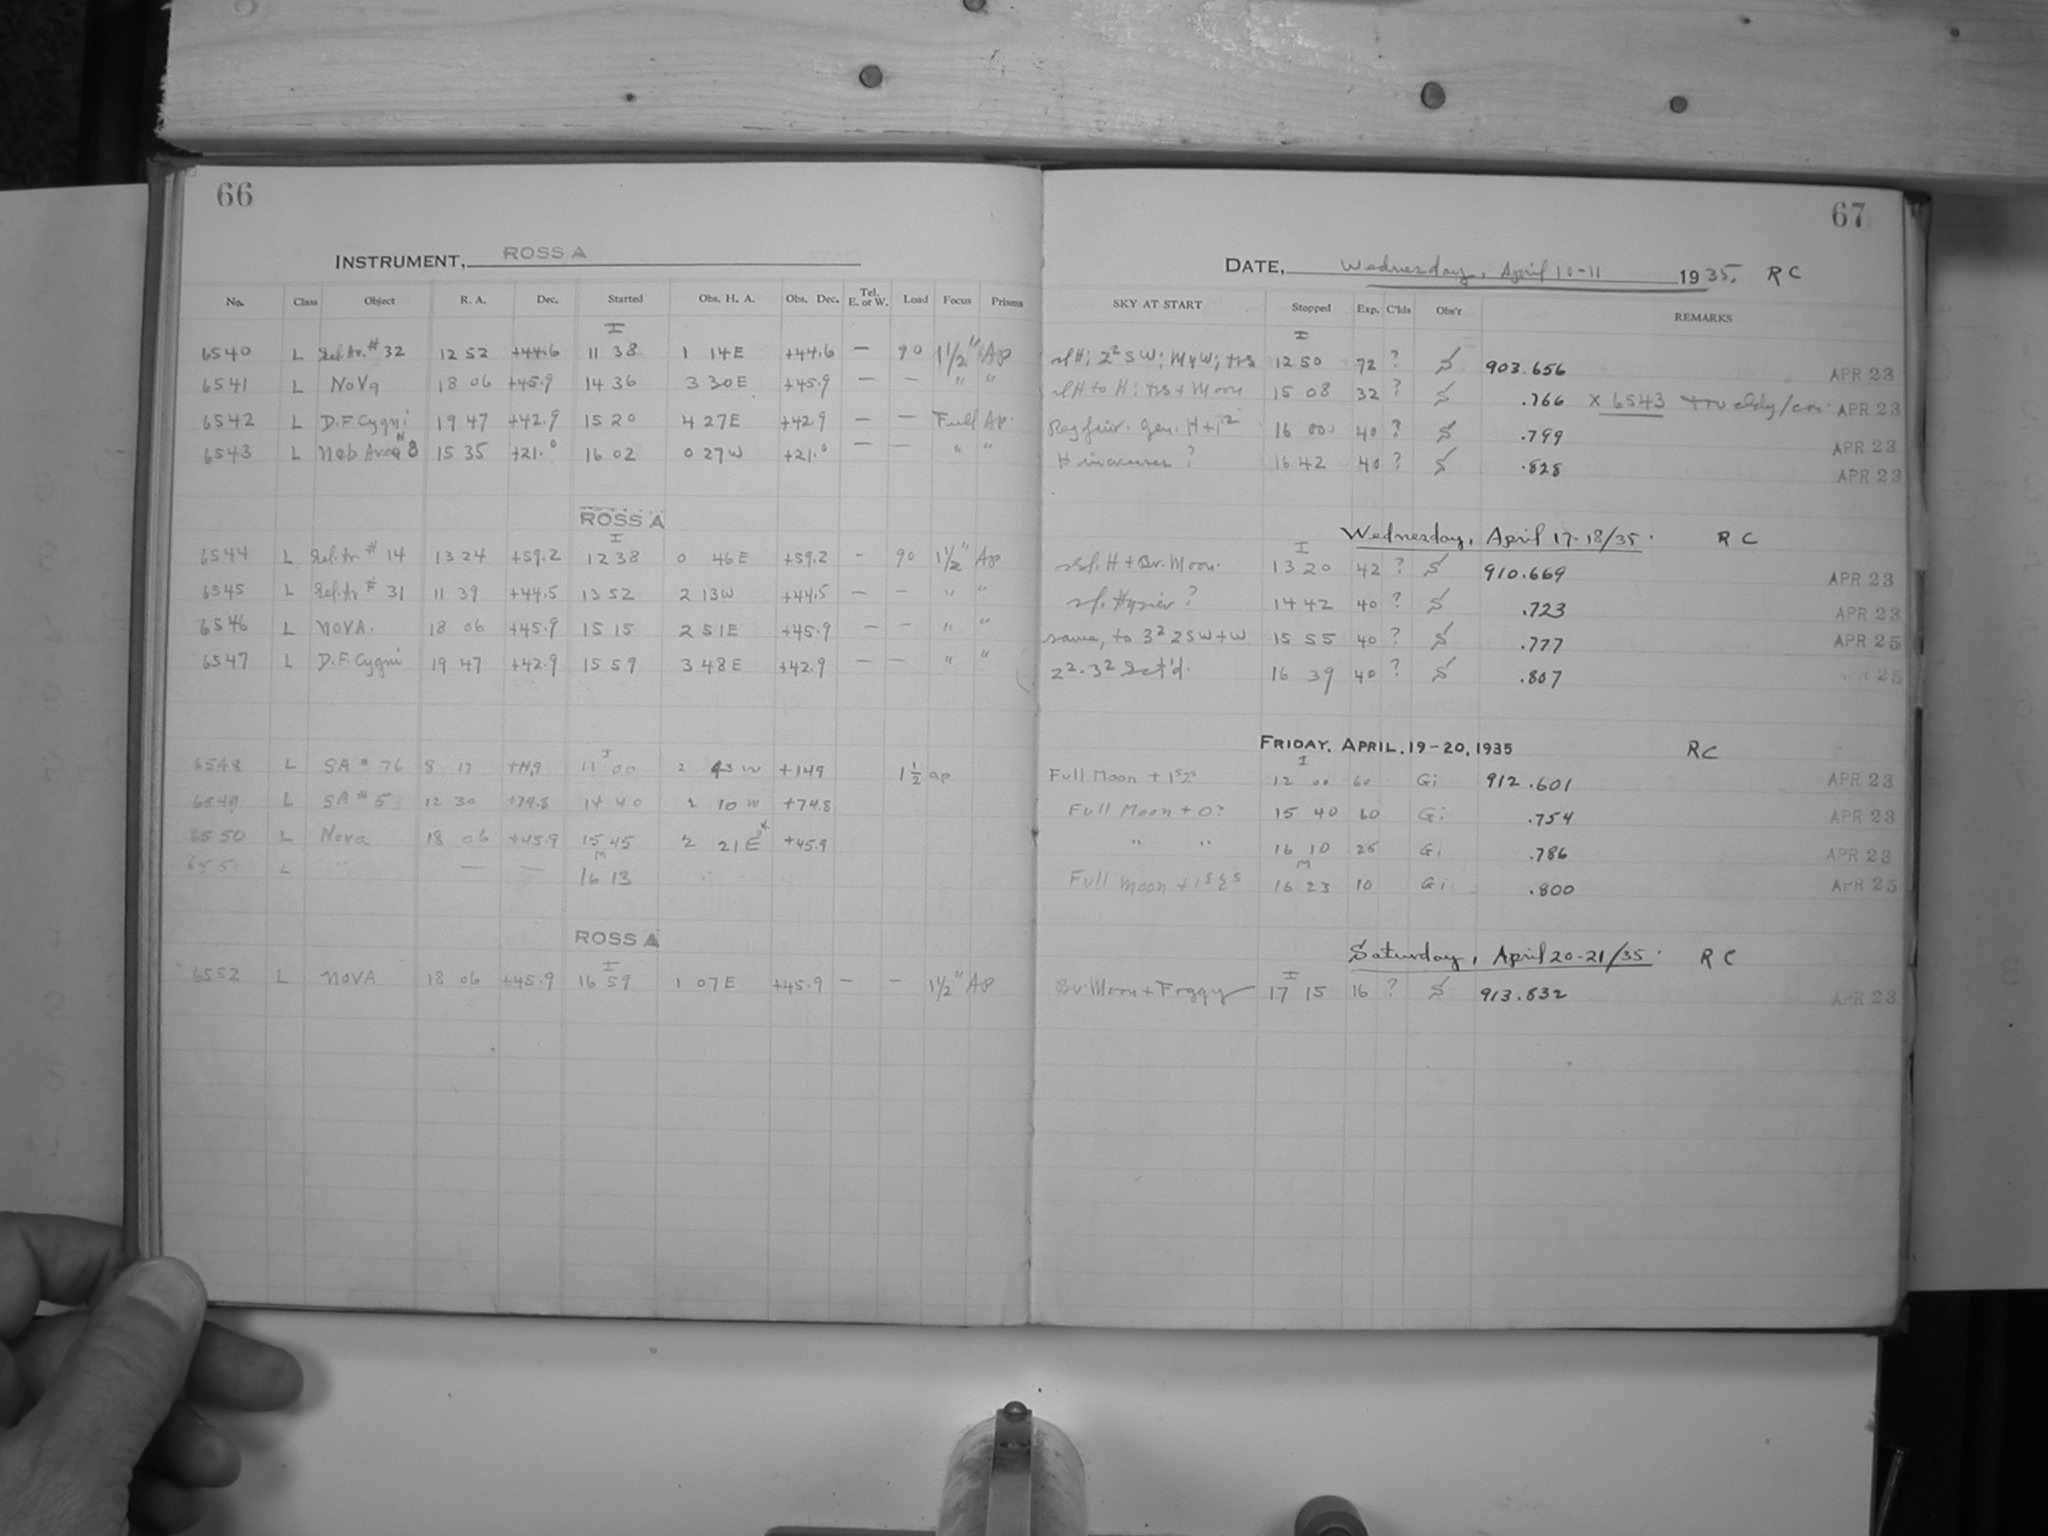 66
INSTRUMENT, ROSS A
No. Class Object R. A. Dec. Started Obs. H. A. Obs. Dec. Tel. E. or W. Load Focus Prisms
I
6540 L Sel. Ar. # 32 12 52 +44.6 11 38 1 14E +44.6 — 90 1 1/2" Ap
6541 L Nova 18 06 +45.9 14 36 3 30E +45.9 — — " "
6542 L D.F. Cygni 19 47 +42.9 15 20 4 27E +42.9 — — Full Ap.
6543 L Neb Area # 8 15 35 +21.0 16 02 0 27W +21.0 — — " "
ROSS A
I
6544 L Sel. Ar. # 14 13 24 +59.2 12 38 0 46E +59.2 - 90 1 1/2" Ap
6545 L Sel. Ar # 31 11 39 +44.5 13 52 2 13W +44.5 — — " "
6546 L NOVA. 18 06 +45.9 15 15 2 51E +45.9 — — " "
6547 L D.F. Cygni 19 47 +42.9 15 59 3 48E +42.9 — — " "
I
6548 L SA # 76 8 17 +14.9 11 00 2 43 W +149 1 1/2 ap
6549 L SA # 5 12 30 +74.8 14 40 2 10 W +74.8
6550 L Nova 18 06 +45.9 15 45 2 21E +45.9
M
6551 L " — — 16 13 "
ROSS A
I
6552 L NOVA 18 06 +45.9 16 59 1 07E +45.9 — — 1 1/2" Ap
67
DATE, Wednesday, April 10-11 1935. RC
SKY AT START Stopped Exp. C'lds Obs'r REMARKS
I
12 50 72 ? S 903.656 APR 23
slH to H; + Moon 15 08 32 ? S .766 x 6543 APR 23
Reg fair. Gen. H + 1² 16 00 40 ? S .799 APR 23
H increases ? 16 42 40 ? S .828 APR 23
Wednesday, April 17-18/35. RC
I
Sl. H + Br. Moon. 13 20 42 ? S 910.669 APR 23
sl. Hazier ? 14 42 40 ? S .723 APR 23
same, to 3² ZSW+W 15 55 40 ? S .777 APR 25
2²-3² Sct'd. 16 39 40 ? S .807 APR 25
FRIDAY, APRIL, 19-20, 1935 RC
I
Full Moon + 1ˢ2ˢ 12 00 60 Gi 912.601 APR 23
Full Moon + 0? 15 40 60 Gi .754 APR 23
" " 16 10 25 Gi .786 APR 23
M
Full moon + 1ˢ2ˢ 16 23 10 Gi .800 APR 25
Saturday, April 20-21/35. RC
I
Br. Moon + Foggy 17 15 16 ? S 913.832 APR 23